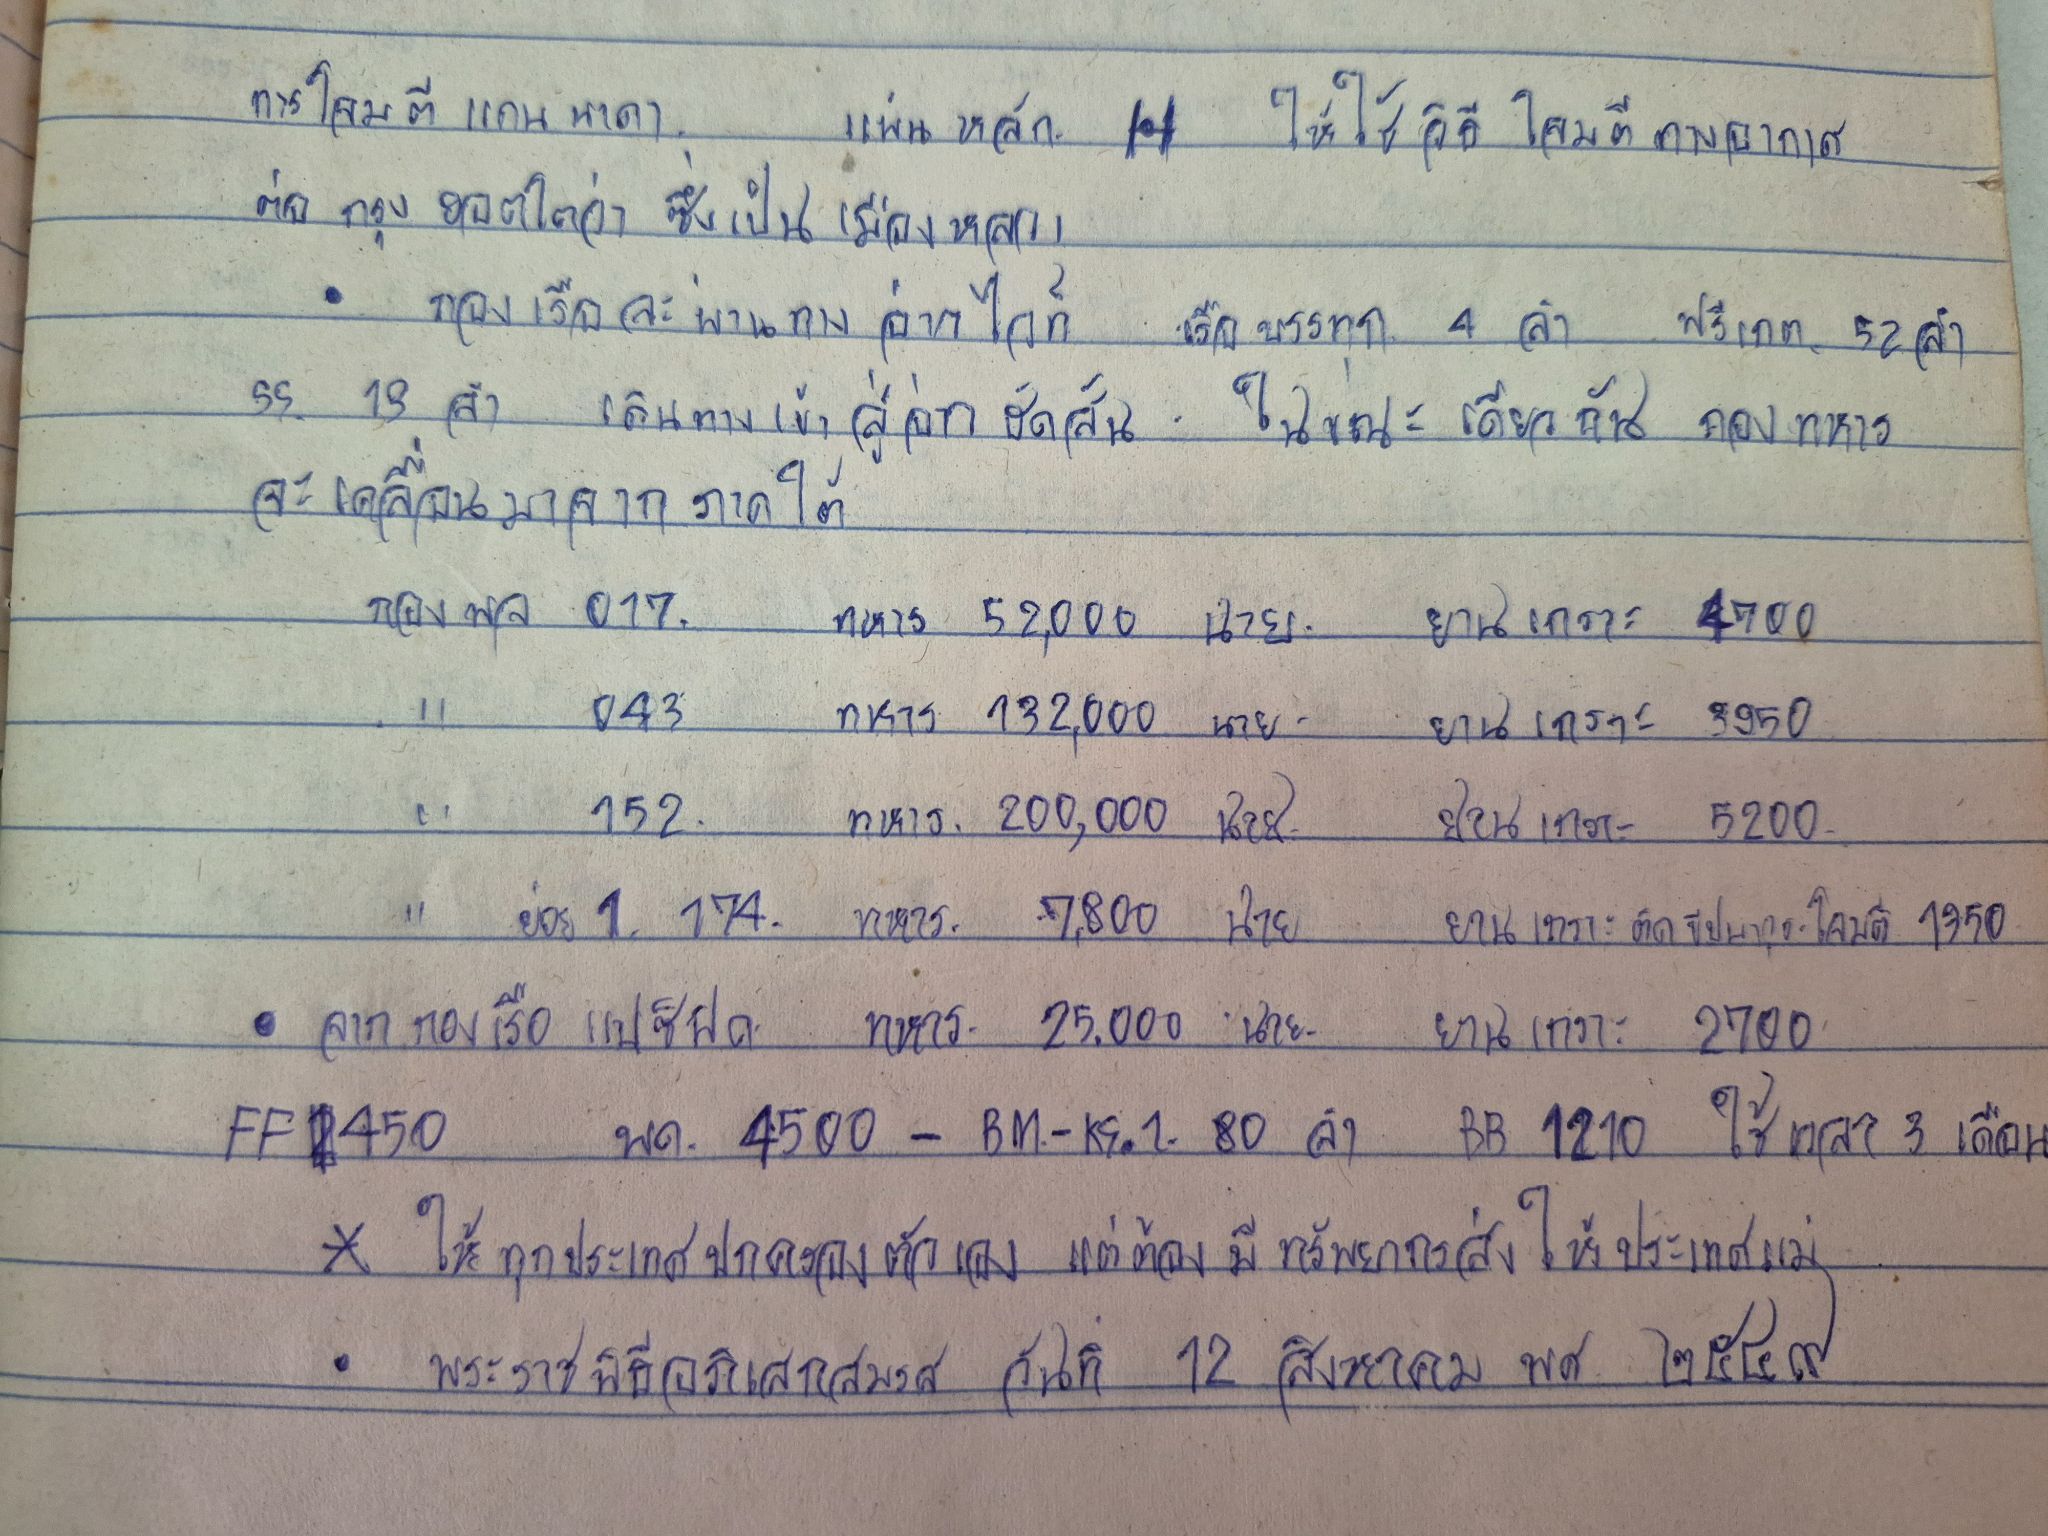 การโจมตีแคนนาดา. แผ่นหลัก. H ให้ใช้วิธีโจมตีทางอากาศ
ต่อ กรุง ยอตโตว่า ซึ่งเป็น เมืองหลวง
• กองเรือจะผ่านทาง อ่าวไวท์ เรือบรรทุก 4 ลำ ฟรีเกต. 52 ลำ
SS. 19 ลำ เดินทางเข้าสู่อ่าว ฮัดสัน. ในขณะเดียวกัน กองทหาร
จะเคลื่อนมาจาก ภาคใต้
กองพล 017. ทหาร 52,000 นาย. ยานเกราะ 4700
" 043 ทหาร 132,000 นาย. ยานเกราะ 3950
" 152. ทหาร. 200,000 นาย. ยานเกราะ 5200.
" ย่อย 1. 174. ทหาร. 7,800 นาย ยานเกราะ ติด โจมตี 1350
• จากกองเรือ แปซิฟิค. ทหาร. 25.000 นาย. ยานเกราะ 2700.
FF 450 พด. 4500 - BM.- 80 ลำ BB 1210 ใช้เวลา 3 เดือน
* ให้ทุกประเทศปกครองตัวเอง แต่ต้องมีทรัพยากรส่งให้ประเทศแม่
• พระราชพิธีอภิเสกสมรส วันที่ 12 สิงหาคม พศ. ๒๕๔๙